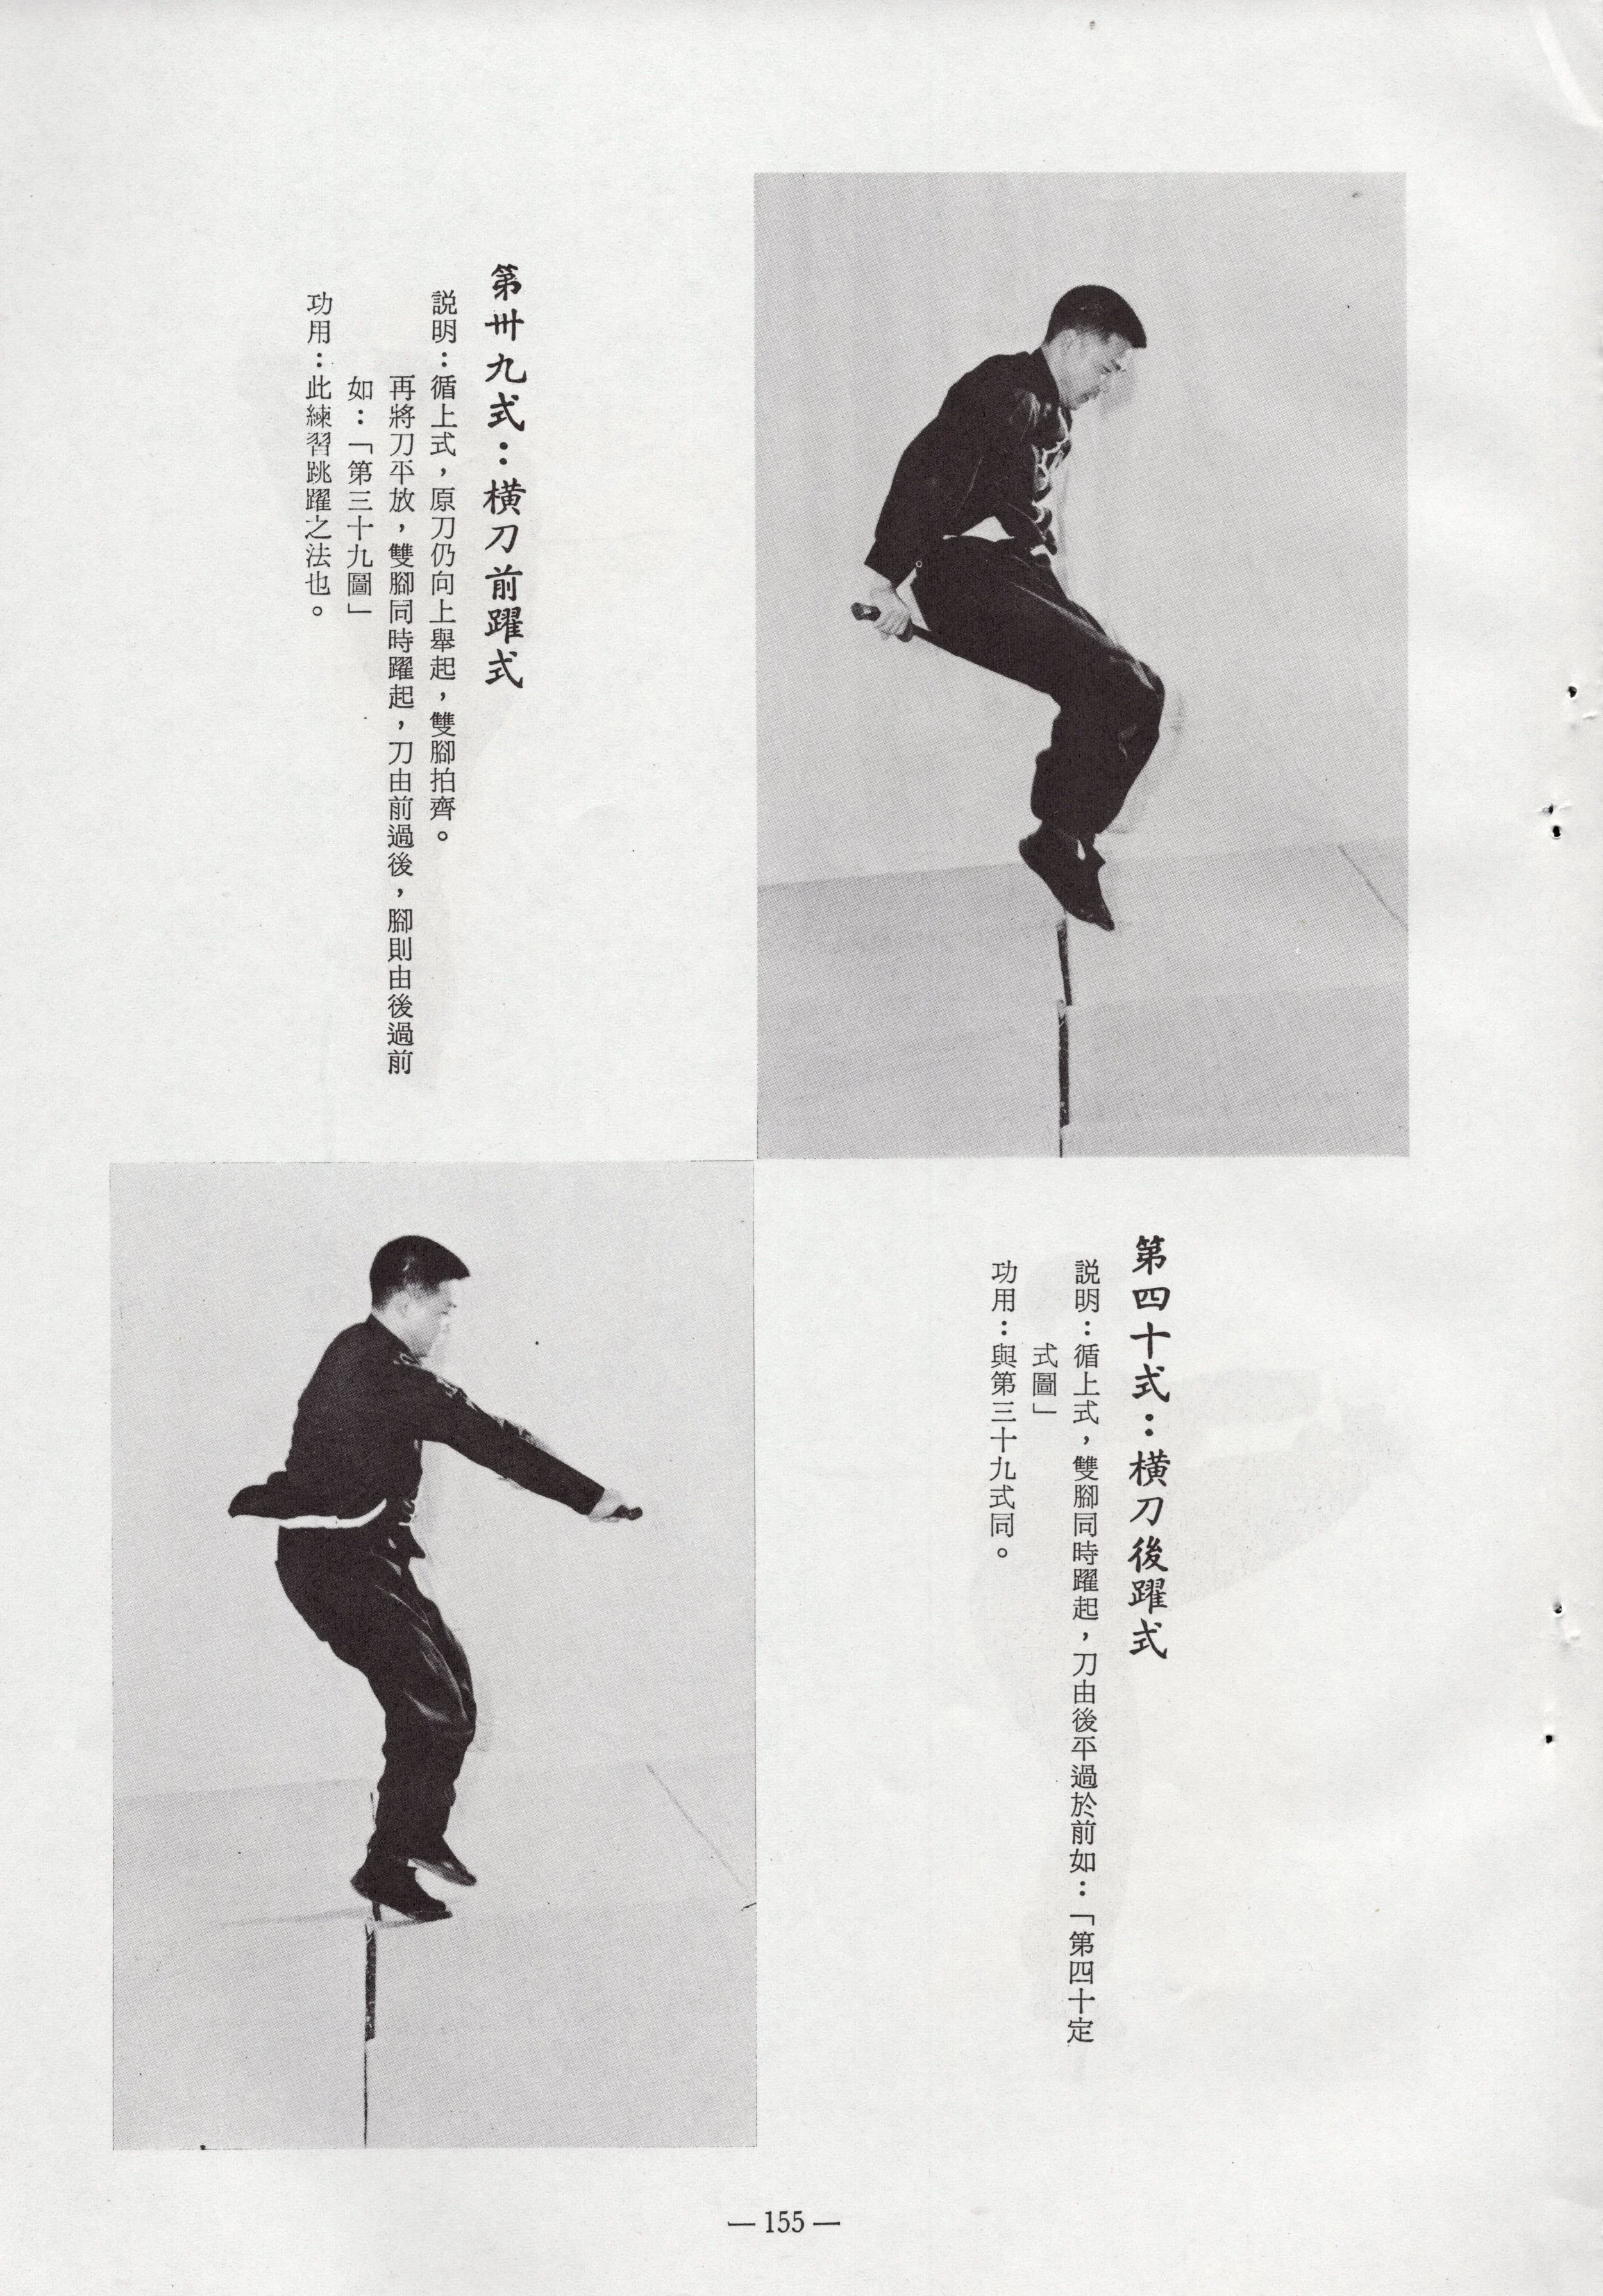 第卅九式：橫刀前躍式
説明：循上式，原刀仍向上舉起，雙腳拍齊。
再將刀平放，雙腳同時躍起，刀由前過後，腳則由後過前
如：「第三十九圖」
功用：此練習跳躍之法也。
第四十式：橫刀後躍式
説明：循上式，雙腳同時躍起，刀由後平過於前如：「第四十定
式圖」
功用：與第三十九式同。
— 155 —